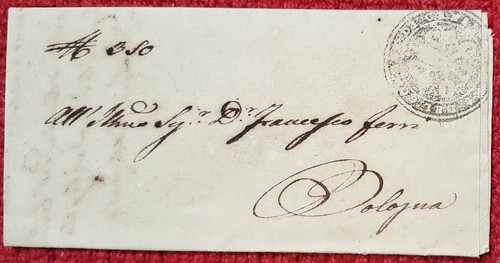 N 350
All' Illmo Sig.r D.r Francesco Ferri
Bologna